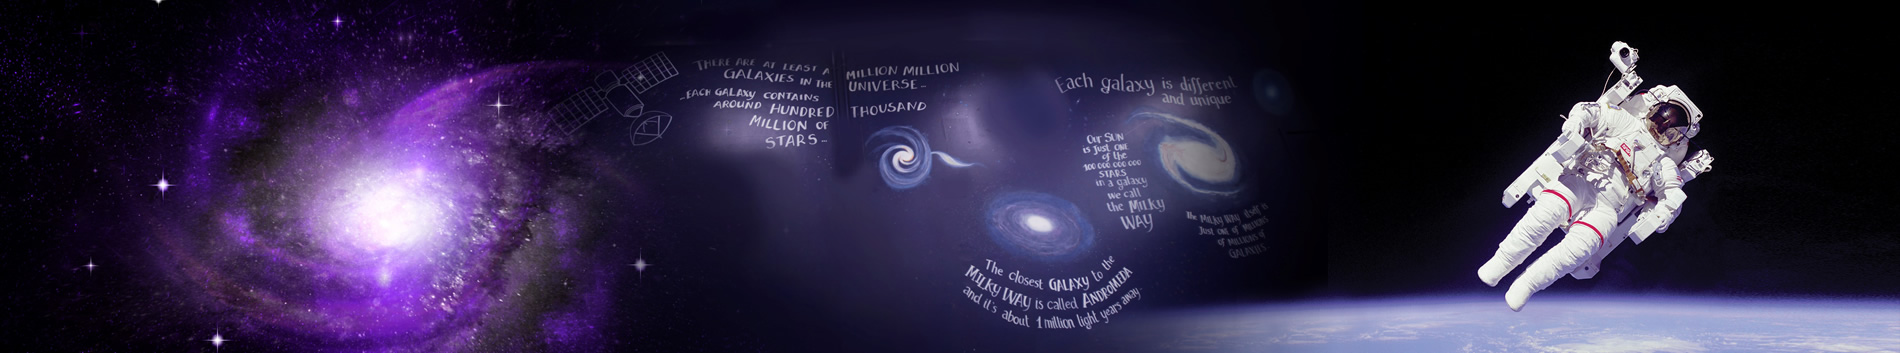 THERE ARE AT LEAST A MILLION MILLION
GALAXIES IN THE UNIVERSE-
-EACH GALAXY CONTAINS
AROUND HUNDRED THOUSAND
MILLION OF
STARS-
Each galaxy is different
and unique
Our SUN
is just ONE
of the
100 000 000 000
STARS
in a galaxy
we call
the MILKY
WAY
The MILKY WAY itself is
Just one of MILLIONS
of MILLIONS of
GALAXIES-
The closest GALAXY to the
MILKY WAY is called ANDROMEDA
and it's about 1 million light years away-